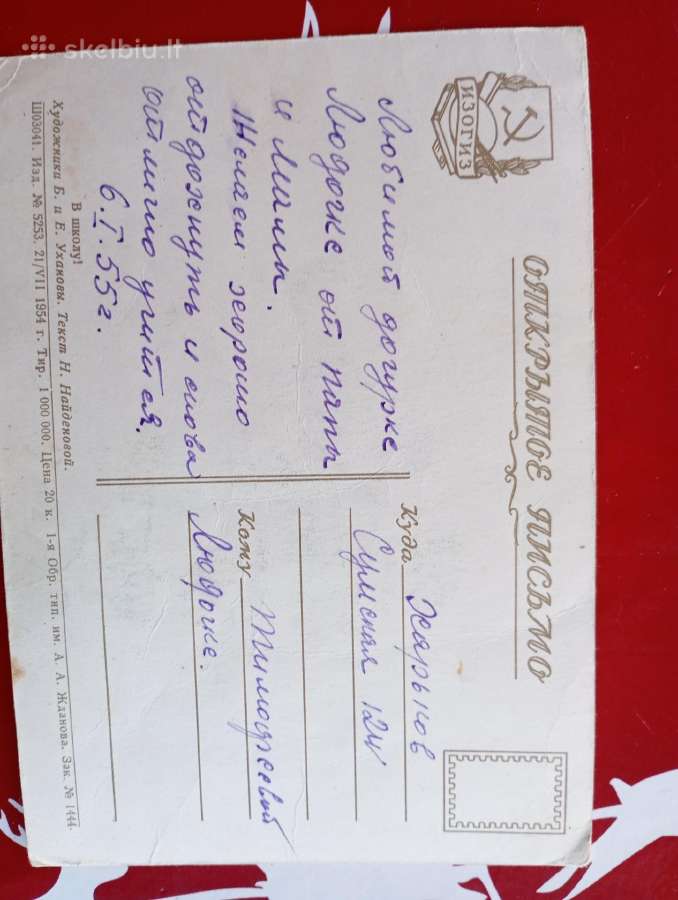 skelbiu.lt
ИЗОГИЗ
ОТКРЫТОЕ ПИСЬМО
Любимой дочурке
Людочке от папы
и мамы.
Желаем хорошо
отдохнуть и снова
отлично учиться.
6.I.55г.
Куда Харьков
Сумская 124
Кому Тимофеевой
Людочке.
В школу!
Художники Б. и Е. Ухановы. Текст Н. Найденовой.
Ш03041. Изд. № 5253. 21/VII 1954 г. Тир. 1 000 000. Цена 20 к. 1-я Обр. тип. им. А. А. Жданова. Зак. № 1444.